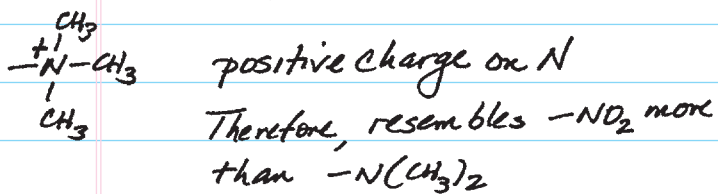 CH₃
+
—N—CH₃
CH₃
positive charge on N
Therefore, resembles —NO₂ more
than —N(CH₃)₂